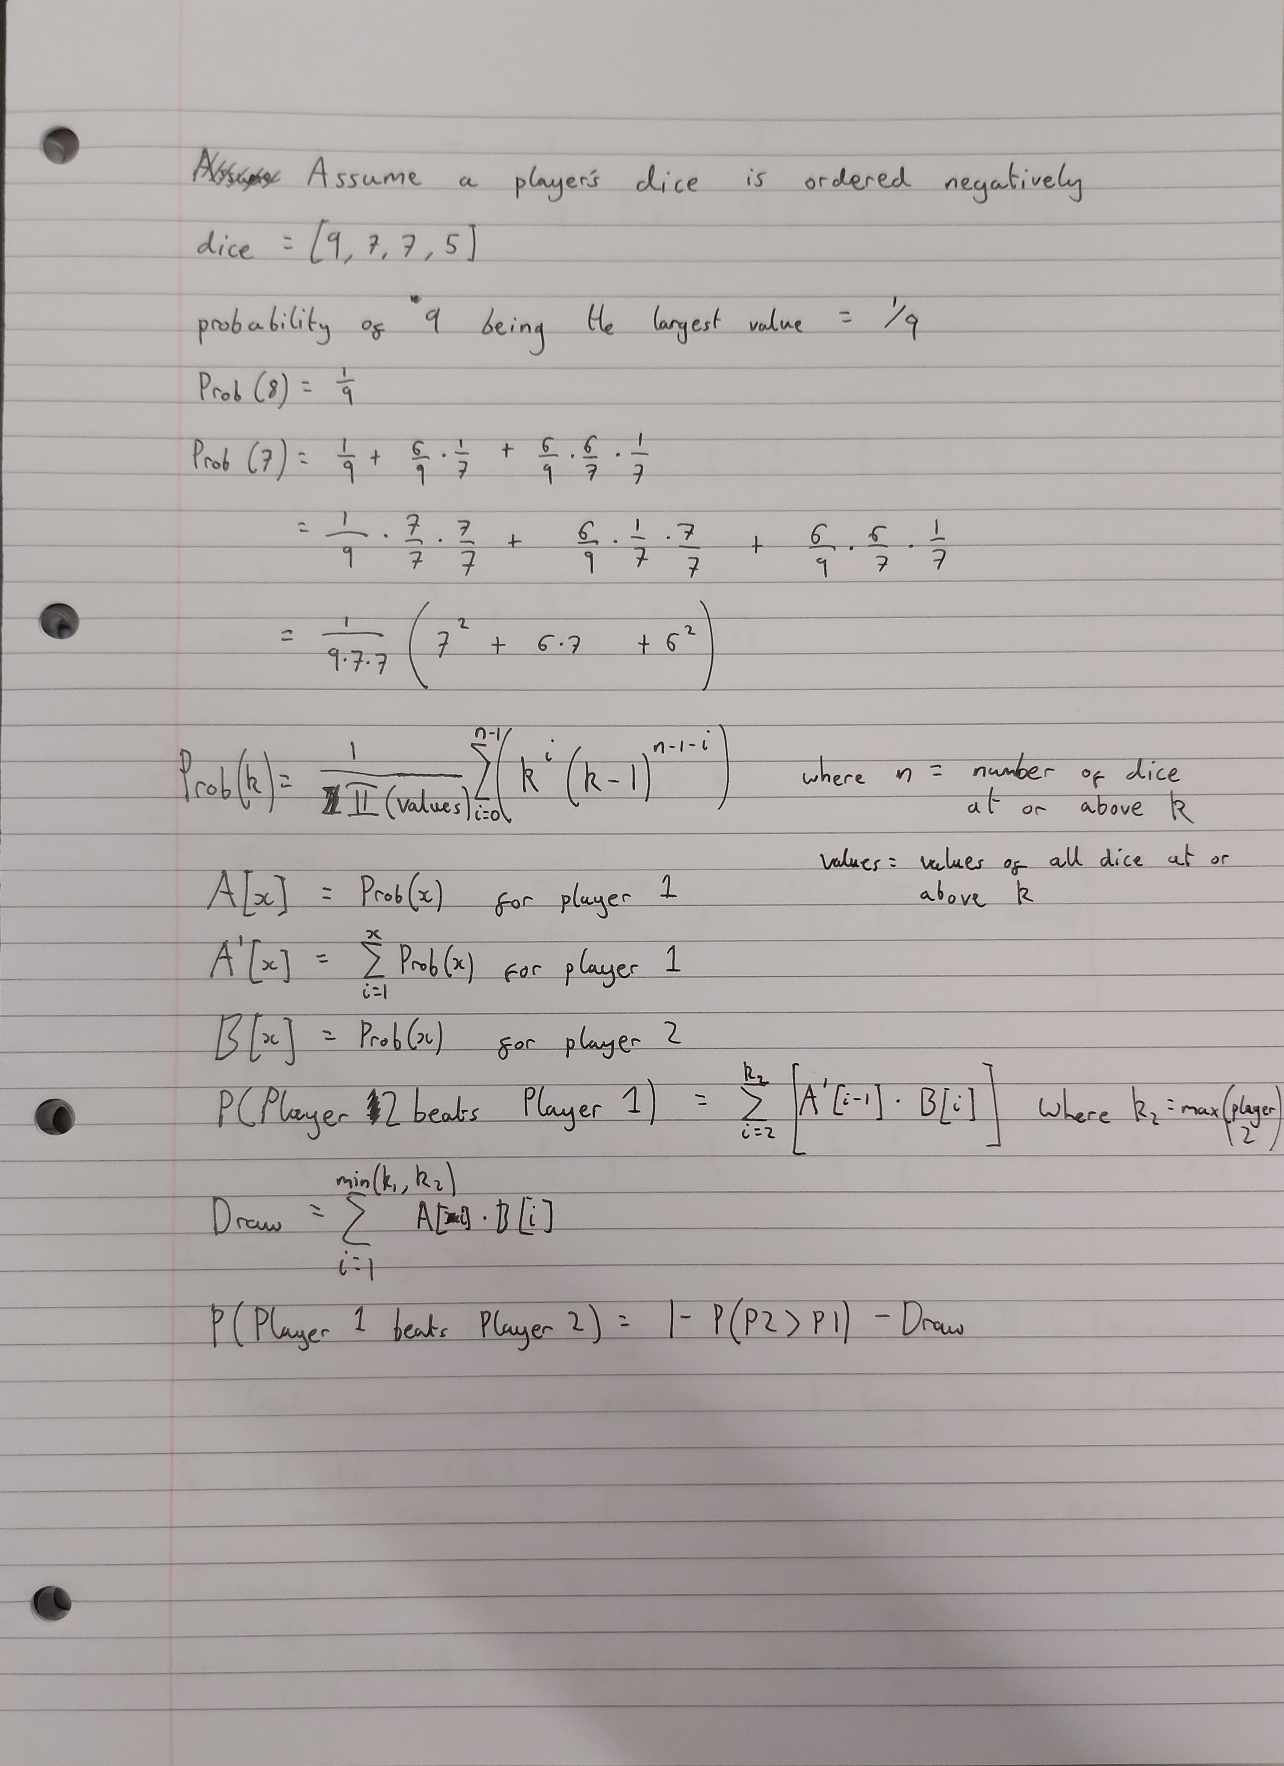 Assume a player's dice is ordered negatively
dice = [9, 7, 7, 5]
probability of 9 being the largest value = 1/9
Prob (8) = 1/9
Prob (7) = 1/9 + 6/9 · 1/7 + 6/9 · 6/7 · 1/7
= 1/9 · 7/7 · 7/7 + 6/9 · 1/7 · 7/7 + 6/9 · 6/7 · 1/7
= 1/(9·7·7) (7² + 6·7 + 6²)
Prob(k) = 1/(Π(values)) Σ_{i=0}^{n-1} (k^i (k-1)^{n-1-i}) where n = number of dice
at or above k
values = values of all dice at or
above k
A[x] = Prob(x) for player 1
A'[x] = Σ_{i=1}^{x} Prob(x) for player 1
B[x] = Prob(x) for player 2
P(Player 2 beats Player 1) = Σ_{i=2}^{k₂} [A'[i-1] · B[i]] where k₂ = max(player 2)
Draw = Σ_{i=1}^{min(k₁, k₂)} A[i] · B[i]
P(Player 1 beats Player 2) = 1 - P(P2 > P1) - Draw